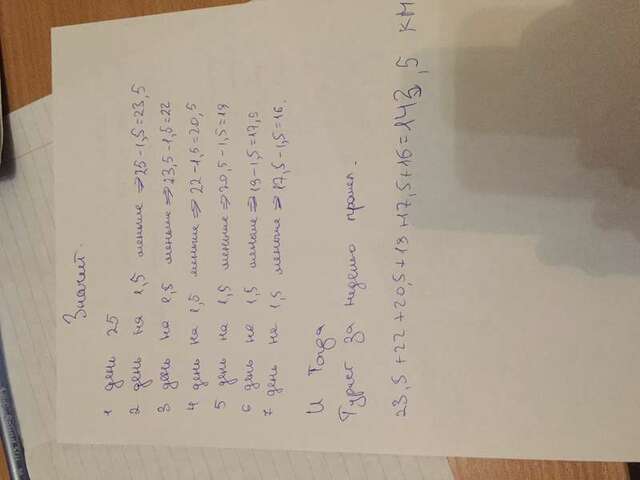 Значит.
1 день 25
2 день на 1,5 меньше ⇒ 25-1,5=23,5
3 день на 1,5 меньше ⇒ 23,5-1,5=22
4 день на 1,5 меньше ⇒ 22-1,5=20,5
5 день на 1,5 меньше ⇒ 20,5-1,5=19
6 день на 1,5 меньше ⇒ 19-1,5=17,5
7 день на 1,5 меньше ⇒ 17,5-1,5=16.
И Тогда
Турист за неделю прошел.
23,5+22+20,5+19+17,5+16=143,5 км